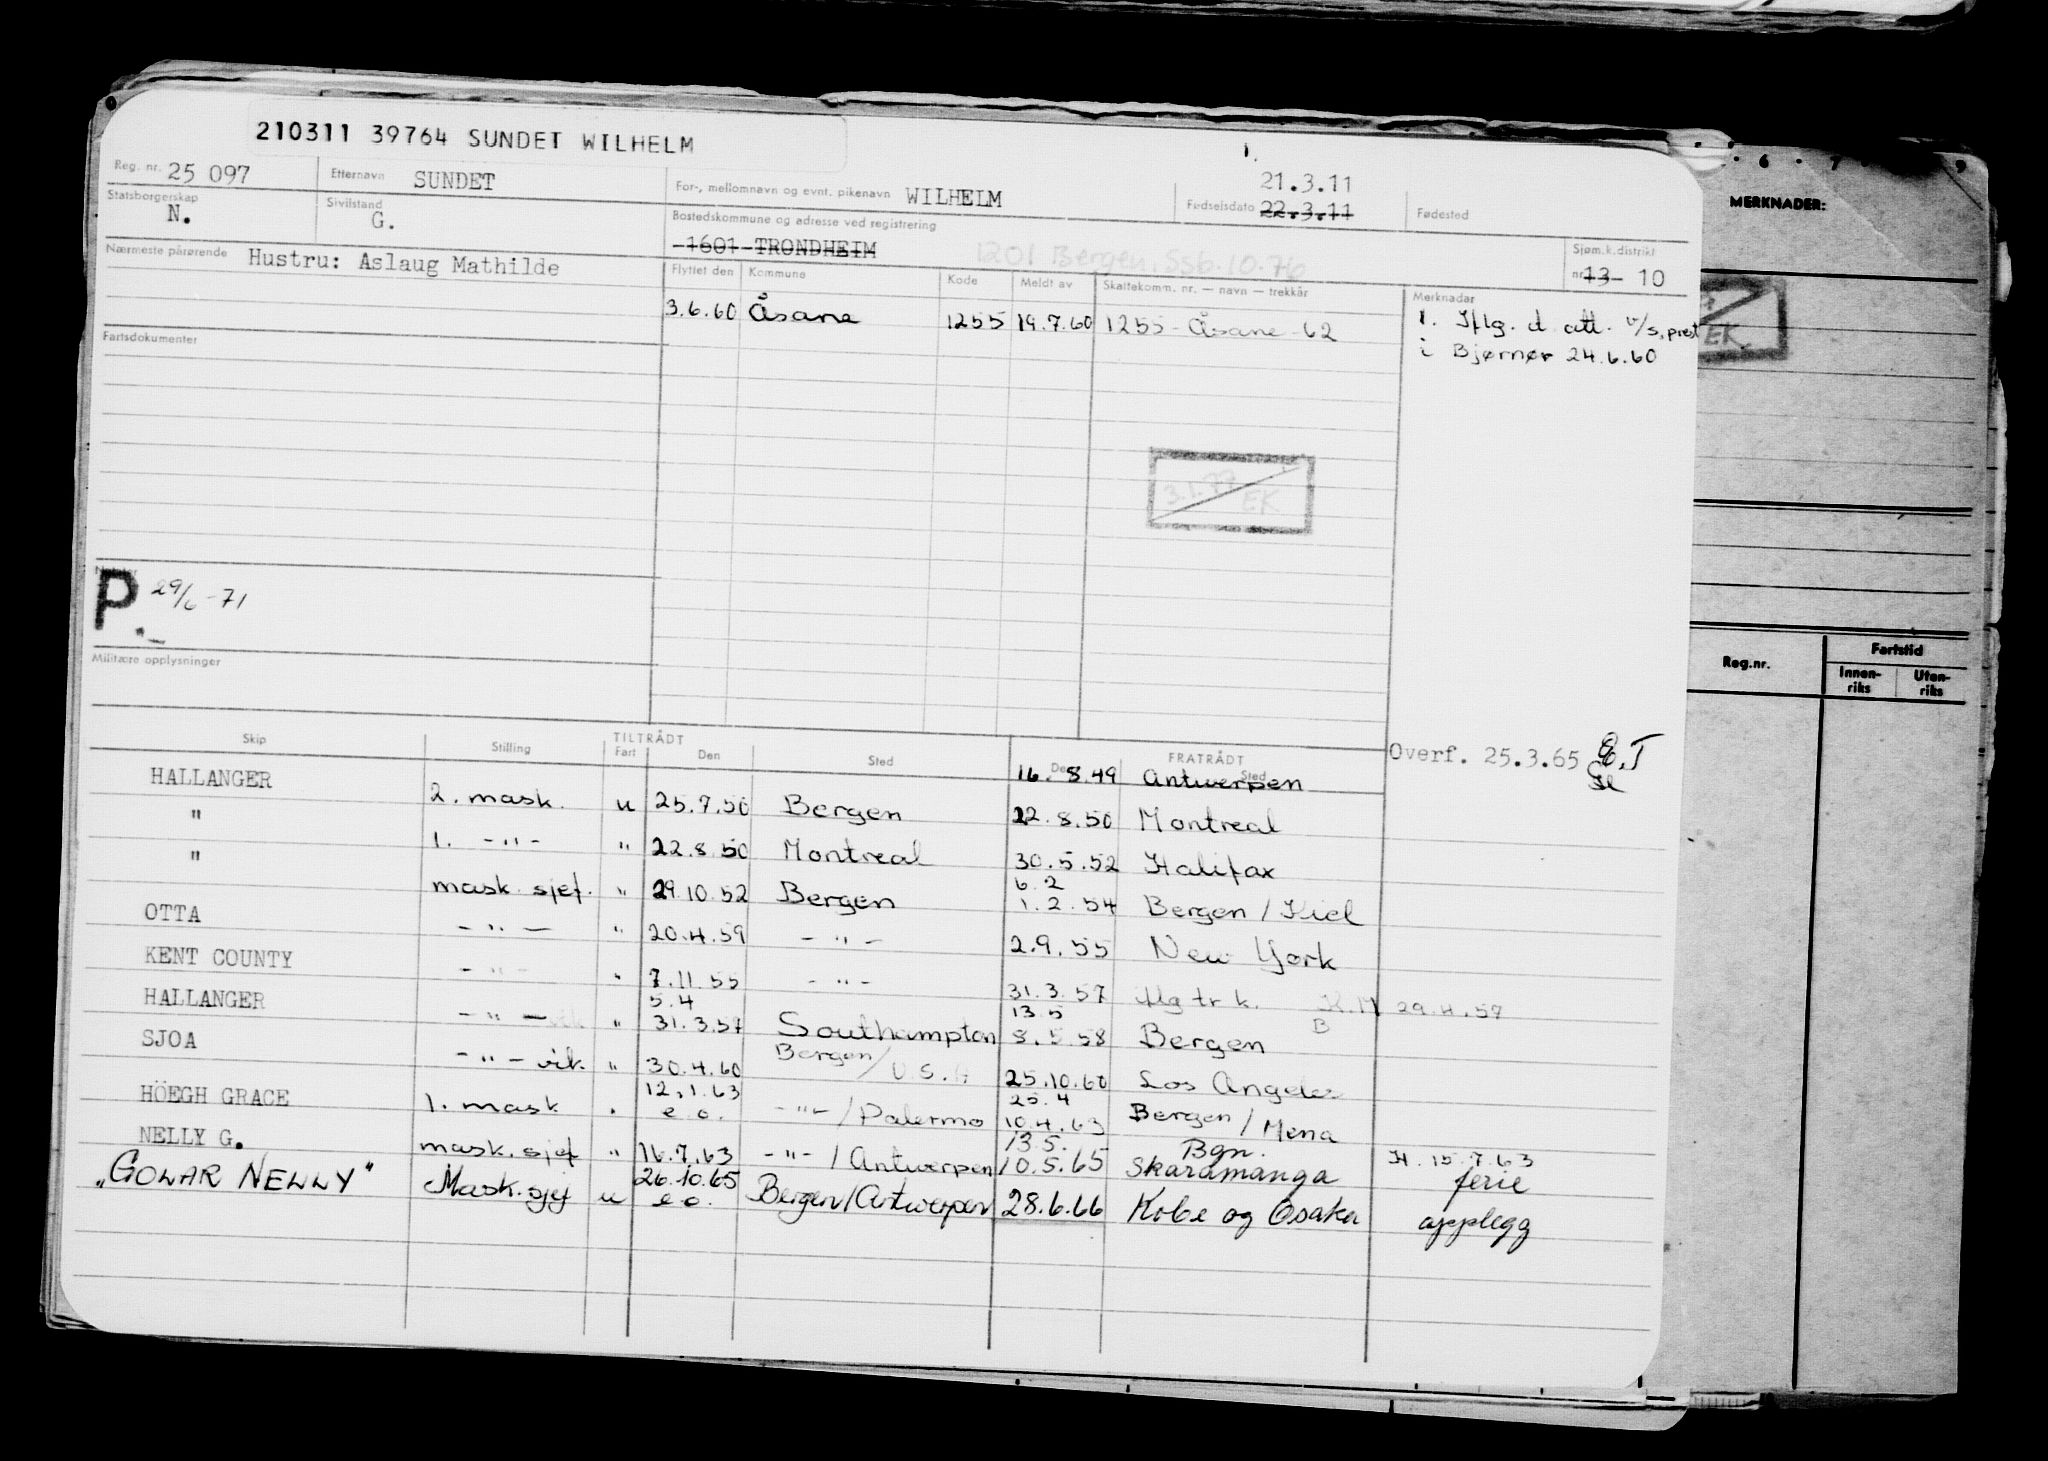 210311 39764 SUNDET WILHELM
Reg. nr. 25 097 Etternavn SUNDET For-, mellomnavn og evnt. pikenavn WILHELM Fødselsdato 1. 21.3.11 22.3.11 Fødested
Statsborgerskap N. Sivilstand G. Bostedskommune og adresse ved registrering 1601 TRONDHEIM 1201 Bergen, Ssb. 10.76 Sjøm.k.distrikt nr 13 10
Nærmeste pårørende Hustru: Aslaug Mathilde
Flyttet den Kommune Kode Meldt av Skattekomm. nr. — navn — trekkår Merknadar
3.6.60 Åsane 1255 19.7.60 1255 - Åsane - 62
1. Iflg. d. att. v/s.prest
i Bjørnør 24.6.60
Fartsdokumenter
3.1.77 EK
P 29/6-71
Militære opplysninger
Skip Stilling TILTRÅDT Fart Den Sted FRATRÅDT Den Sted
Overf. 25.3.65
HALLANGER 16.8.49 Antwerpen
" 2. mask. u 25.7.50 Bergen 22.8.50 Montreal
" 1. -"- " 22.8.50 Montreal 30.5.52 Halifax
mask. sjef. " 29.10.52 Bergen 6.2 1.2.54 Bergen / Kiel
OTTA -"- " 20.4.59 -"- 2.9.55 New York
KENT COUNTY -"- " 7.11.55 -"- 31.3.57 iflg tr k. 29.4.57
HALLANGER -"- " 5.4 31.3.57 Southampton 13.5 8.5.58 Bergen
SJOA -"- vik " 30.4.60 Bergen / U.S.A 25.10.60 Los Angeles
HÖEGH GRACE 1. mask " 12.1.63 e.o. -"- / Palermo 25.4 10.4.63 Bergen / Mena
NELLY G. mask. sjef " 16.7.63 -"- / Antwerpen 13.5. 10.5.65 Bgn. Skaramanga H. 15.7.63 ferie
"GOLAR NELLY" Mask.sjef u 26.10.65 e.o. Bergen/Antwerpen 28.6.66 Kobe og Osaka opplegg
MERKNADER:
EK
Reg.nr. Fartstid
Innen-riks Uten-riks